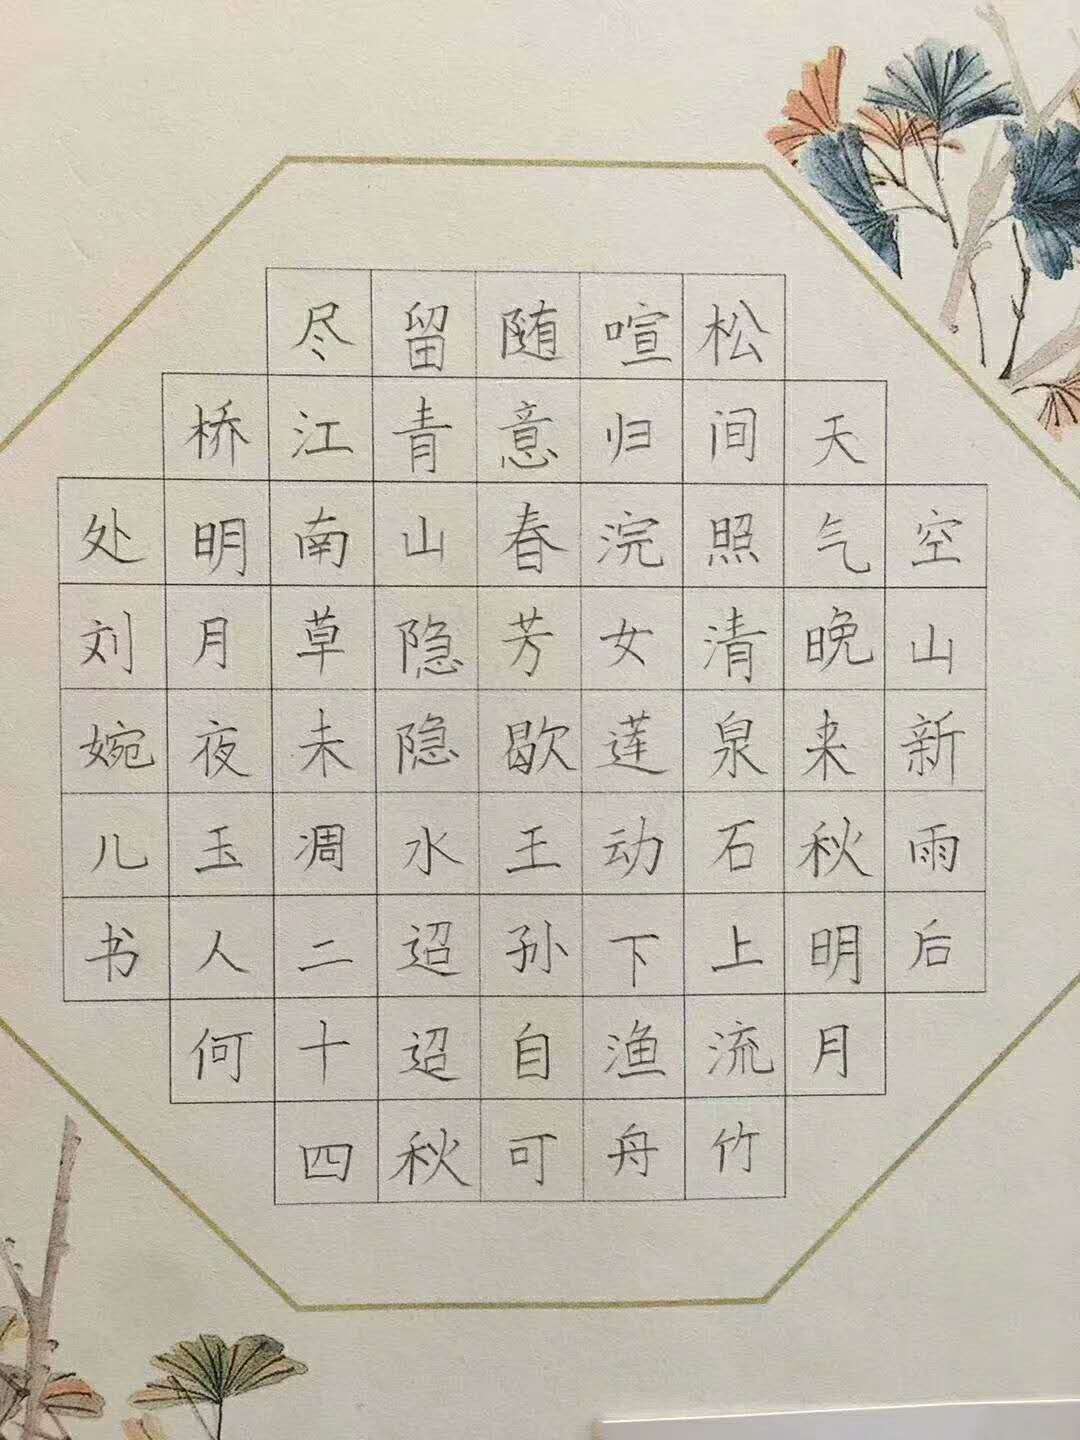 空山新雨后
天气晚来秋明月
松间照清泉石上流竹
喧归浣女莲动下渔舟
随意春芳歇王孙自可
留青山隐隐水迢迢秋
尽江南草未凋二十四
桥明月夜玉人何
处刘婉儿书